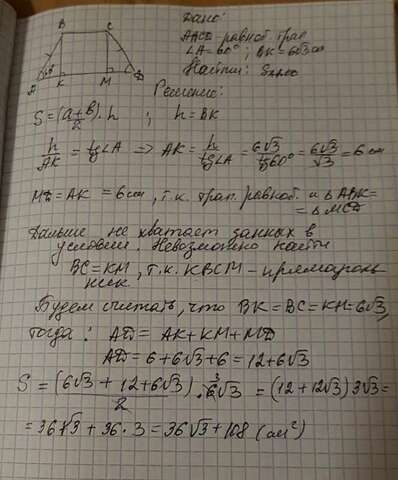 B C
A K M D
Дано:
ABCD - равноб. трап
∠A = 60°; BK = 6√3 см
Найти: S ABCD
Решение:
S = (a+b)/2 · h ; h = BK
h/AK = tg∠A => AK = h/tg∠A = 6√3/tg60° = 6√3/√3 = 6 см
MD = AK = 6 см, т.к. трап. равноб. и ΔABK =
= ΔMCD
Дальше не хватает данных в
условии. Невозможно найти
BC = KM, т.к. KBCM - прямоуголь
ник.
Будем считать, что BK = BC = KM = 6√3,
тогда: AD = AK + KM + MD
AD = 6 + 6√3 + 6 = 12 + 6√3
S = (6√3 + 12 + 6√3)/2 · 6√3 = (12 + 12√3) 3√3 =
= 36√3 + 36 · 3 = 36√3 + 108 (см²)